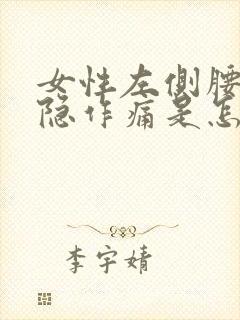 女性左侧腰
隐作痛是怎
李宇婧